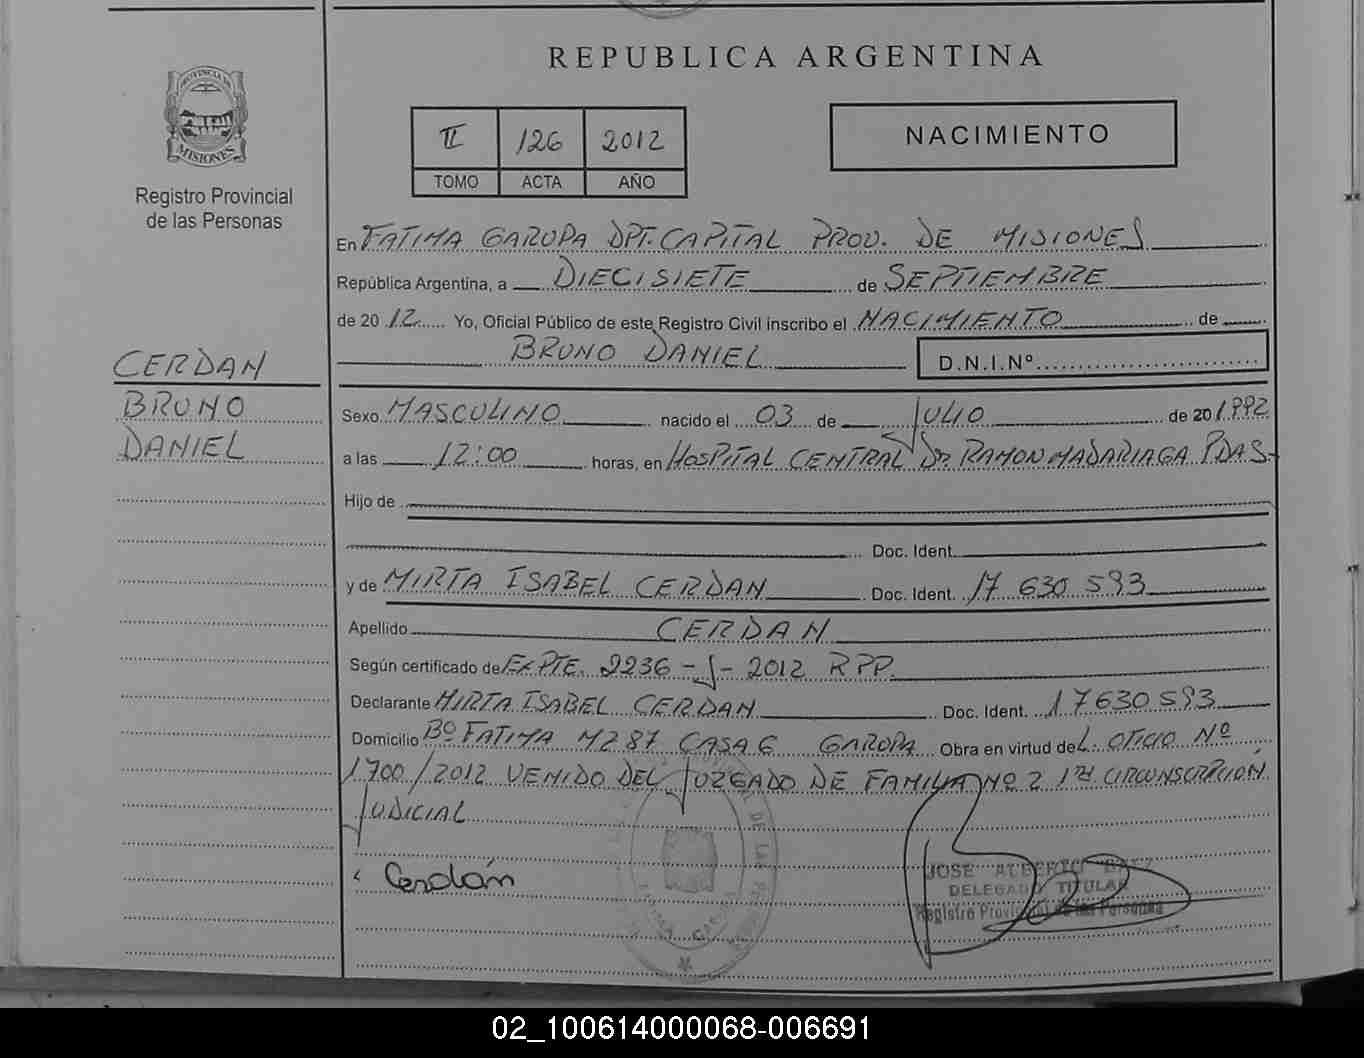 REPUBLICA ARGENTINA
PROVINCIA DE
MISIONES
Registro Provincial
de las Personas
II 126 2012
TOMO ACTA AÑO
NACIMIENTO
En FATIMA GARUPA DPT. CAPITAL PROV. DE MISIONES
República Argentina, a DIECISIETE de SEPTIEMBRE
de 2012 Yo, Oficial Público de este Registro Civil inscribo el NACIMIENTO de
BRUNO DANIEL D.N.I.Nº
CERDAN
BRUNO
DANIEL
Sexo MASCULINO nacido el 03 de JULIO de 20 1992
a las 12:00 horas, en HOSPITAL CENTRAL DR. RAMON MADARIAGA PDAS-
Hijo de
Doc. Ident.
y de MIRTA ISABEL CERDAN Doc. Ident. 17 630 593
Apellido CERDAN
Según certificado de EXPTE. 2236-J-2012 RPP.
Declarante MIRTA ISABEL CERDAN Doc. Ident. 17630593
Domicilio Bº FATIMA MZ 87 CASA 6 GARUPA Obra en virtud de L. OFICIO Nº
1700/2012 VENIDO DEL JUZGADO DE FAMILIA Nº 2 1RA CIRCUNSCRIPCION
JUDICIAL
Cerdán
JOSE ALBERTO
DELEGADO TITULAR
Registro Provincial de las Personas
02_100614000068-006691